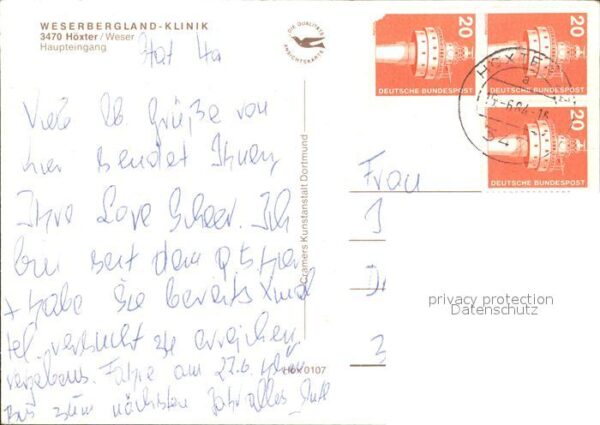 WESERBERGLAND-KLINIK
3470 Höxter/Weser
Haupteingang
DIE QUALITÄTS
ANSICHTSKARTE
20
20
DEUTSCHE BUNDESPOST
DEUTSCHE BUNDESPOST
20
DEUTSCHE BUNDESPOST
HÖXTER
Viele lb Grüße von
hier sendet Ihnen
Ihre Lore Scheer. Ich
bin seit dem 9.5. hier
+ habe Sie bereits xmal
tel. versucht zu erreichen
vergebens. Fahre am 27.6.
Bis zum nächsten Jahr alles Gute
Cramers Kunstanstalt Dortmund
Höx 0107
Frau
privacy protection
Datenschutz